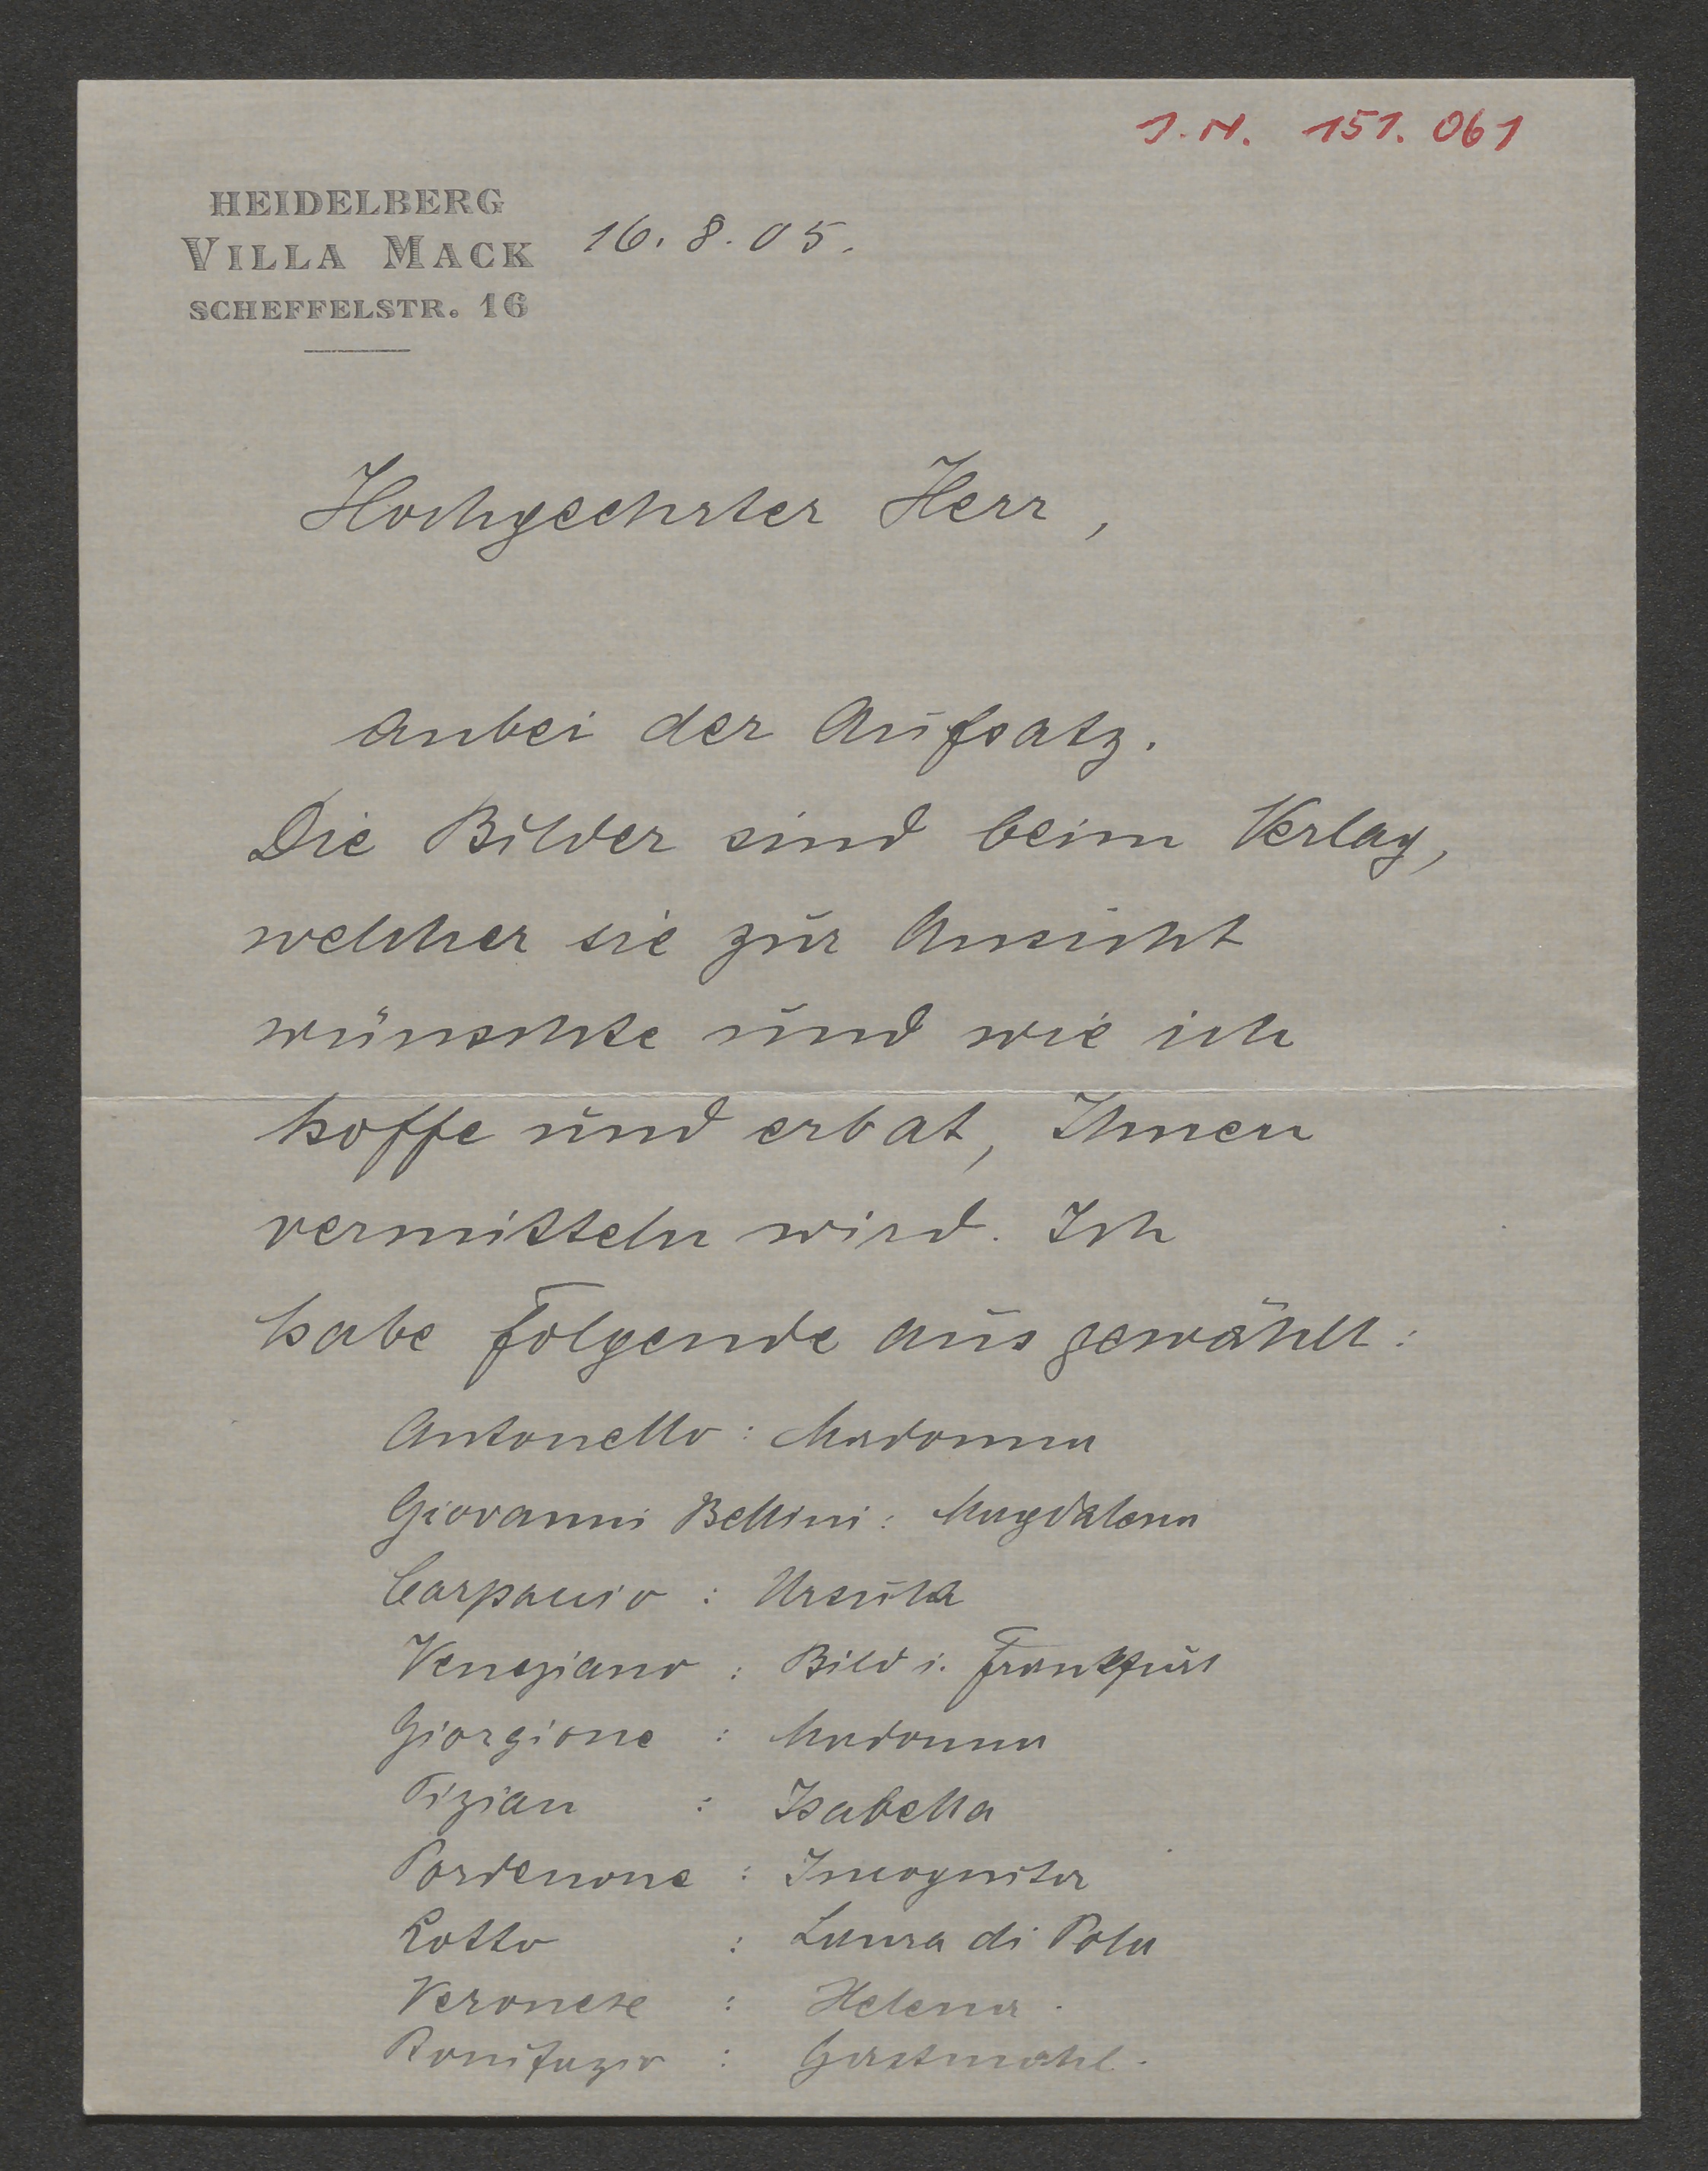 J.N. 151.061
HEIDELBERG
VILLA MACK
SCHEFFELSTR. 16
16.8.05.
Hochgeehrter Herr,
anbei der Aufsatz.
Die Bilder sind beim Verlag,
welcher sie zur Ansicht
wünschte und wie ich
hoffe und erbat, Ihnen
vermitteln wird. Ich
habe folgende ausgewählt:
Antonello : Madonna
Giovanni Bellini : Magdalena
Carpaccio : Ursula
Veneziano : Bild i. Frankfurt
Giorgione : Madonna
Tizian : Isabella
Pordenone : Incognita
Lotto : Laura di Pola
Veronese : Helena.
Bonifazio : Gastmahl.